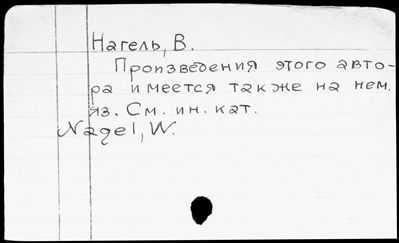 Нагель, В.
Произведения этого авто-
ра имеется также на нем.
яз. См. ин. кат.
Nagel, W.